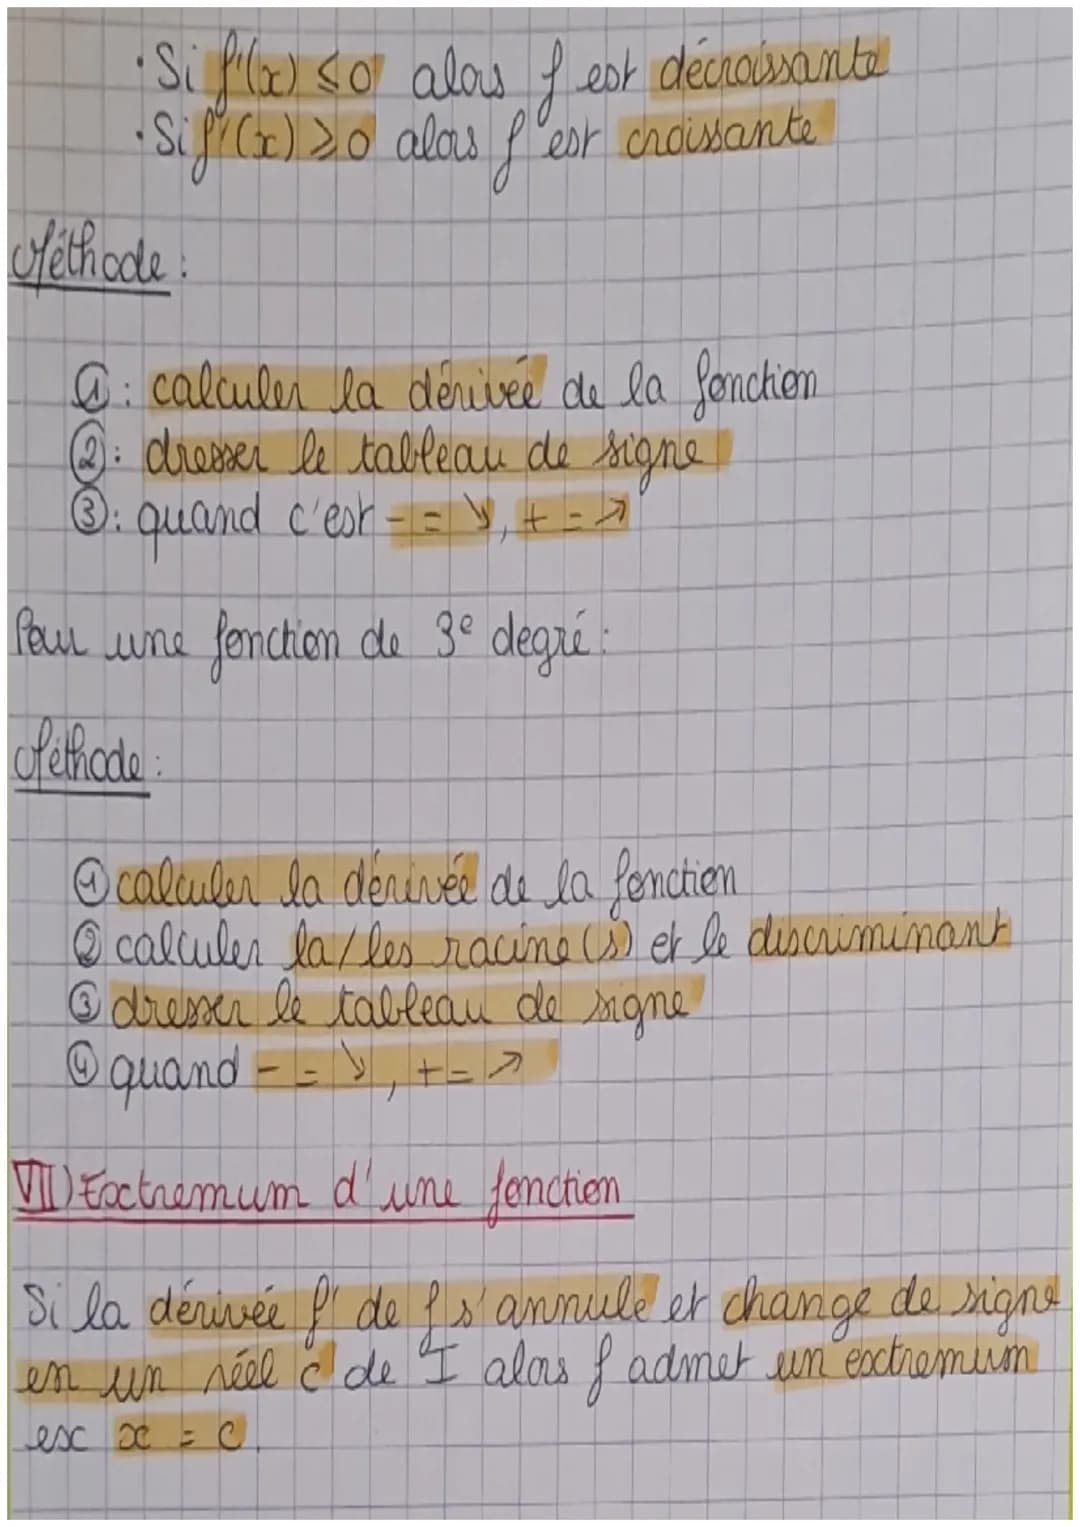 · Si f'(x) ⩽ 0 alors f est décroissante
· Si f'(x) ⩾ 0 alors f est croissante
Méthode :
①: calculer la dérivée de la fonction
②: dresser le tableau de signe
③: quand c'est - = ↘, + = ↗
Pour une fonction de 3e degré :
Méthode :
① calculer la dérivée de la fonction
② calculer la/les racine(s) et le discriminant
③ dresser le tableau de signe
④ quand - = ↘, + = ↗
VII) Extremum d'une fonction
Si la dérivée f' de f s'annule et change de signe
en un réel c de I alors f admet un extremum
ex x = c.